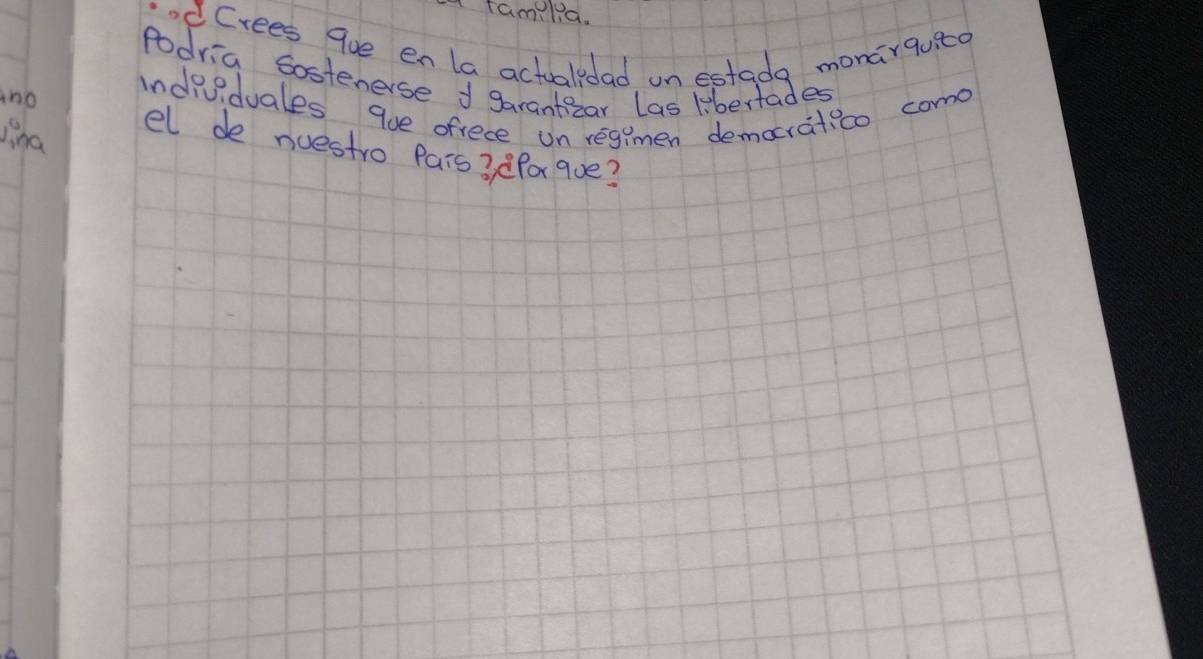 familia.
¿Crees que en la actualidad un estado monárquico
Podría sostenerse y garantizar las libertades
individuales que ofrece un régimen democrático como
el de nuestro País?¿Por que?